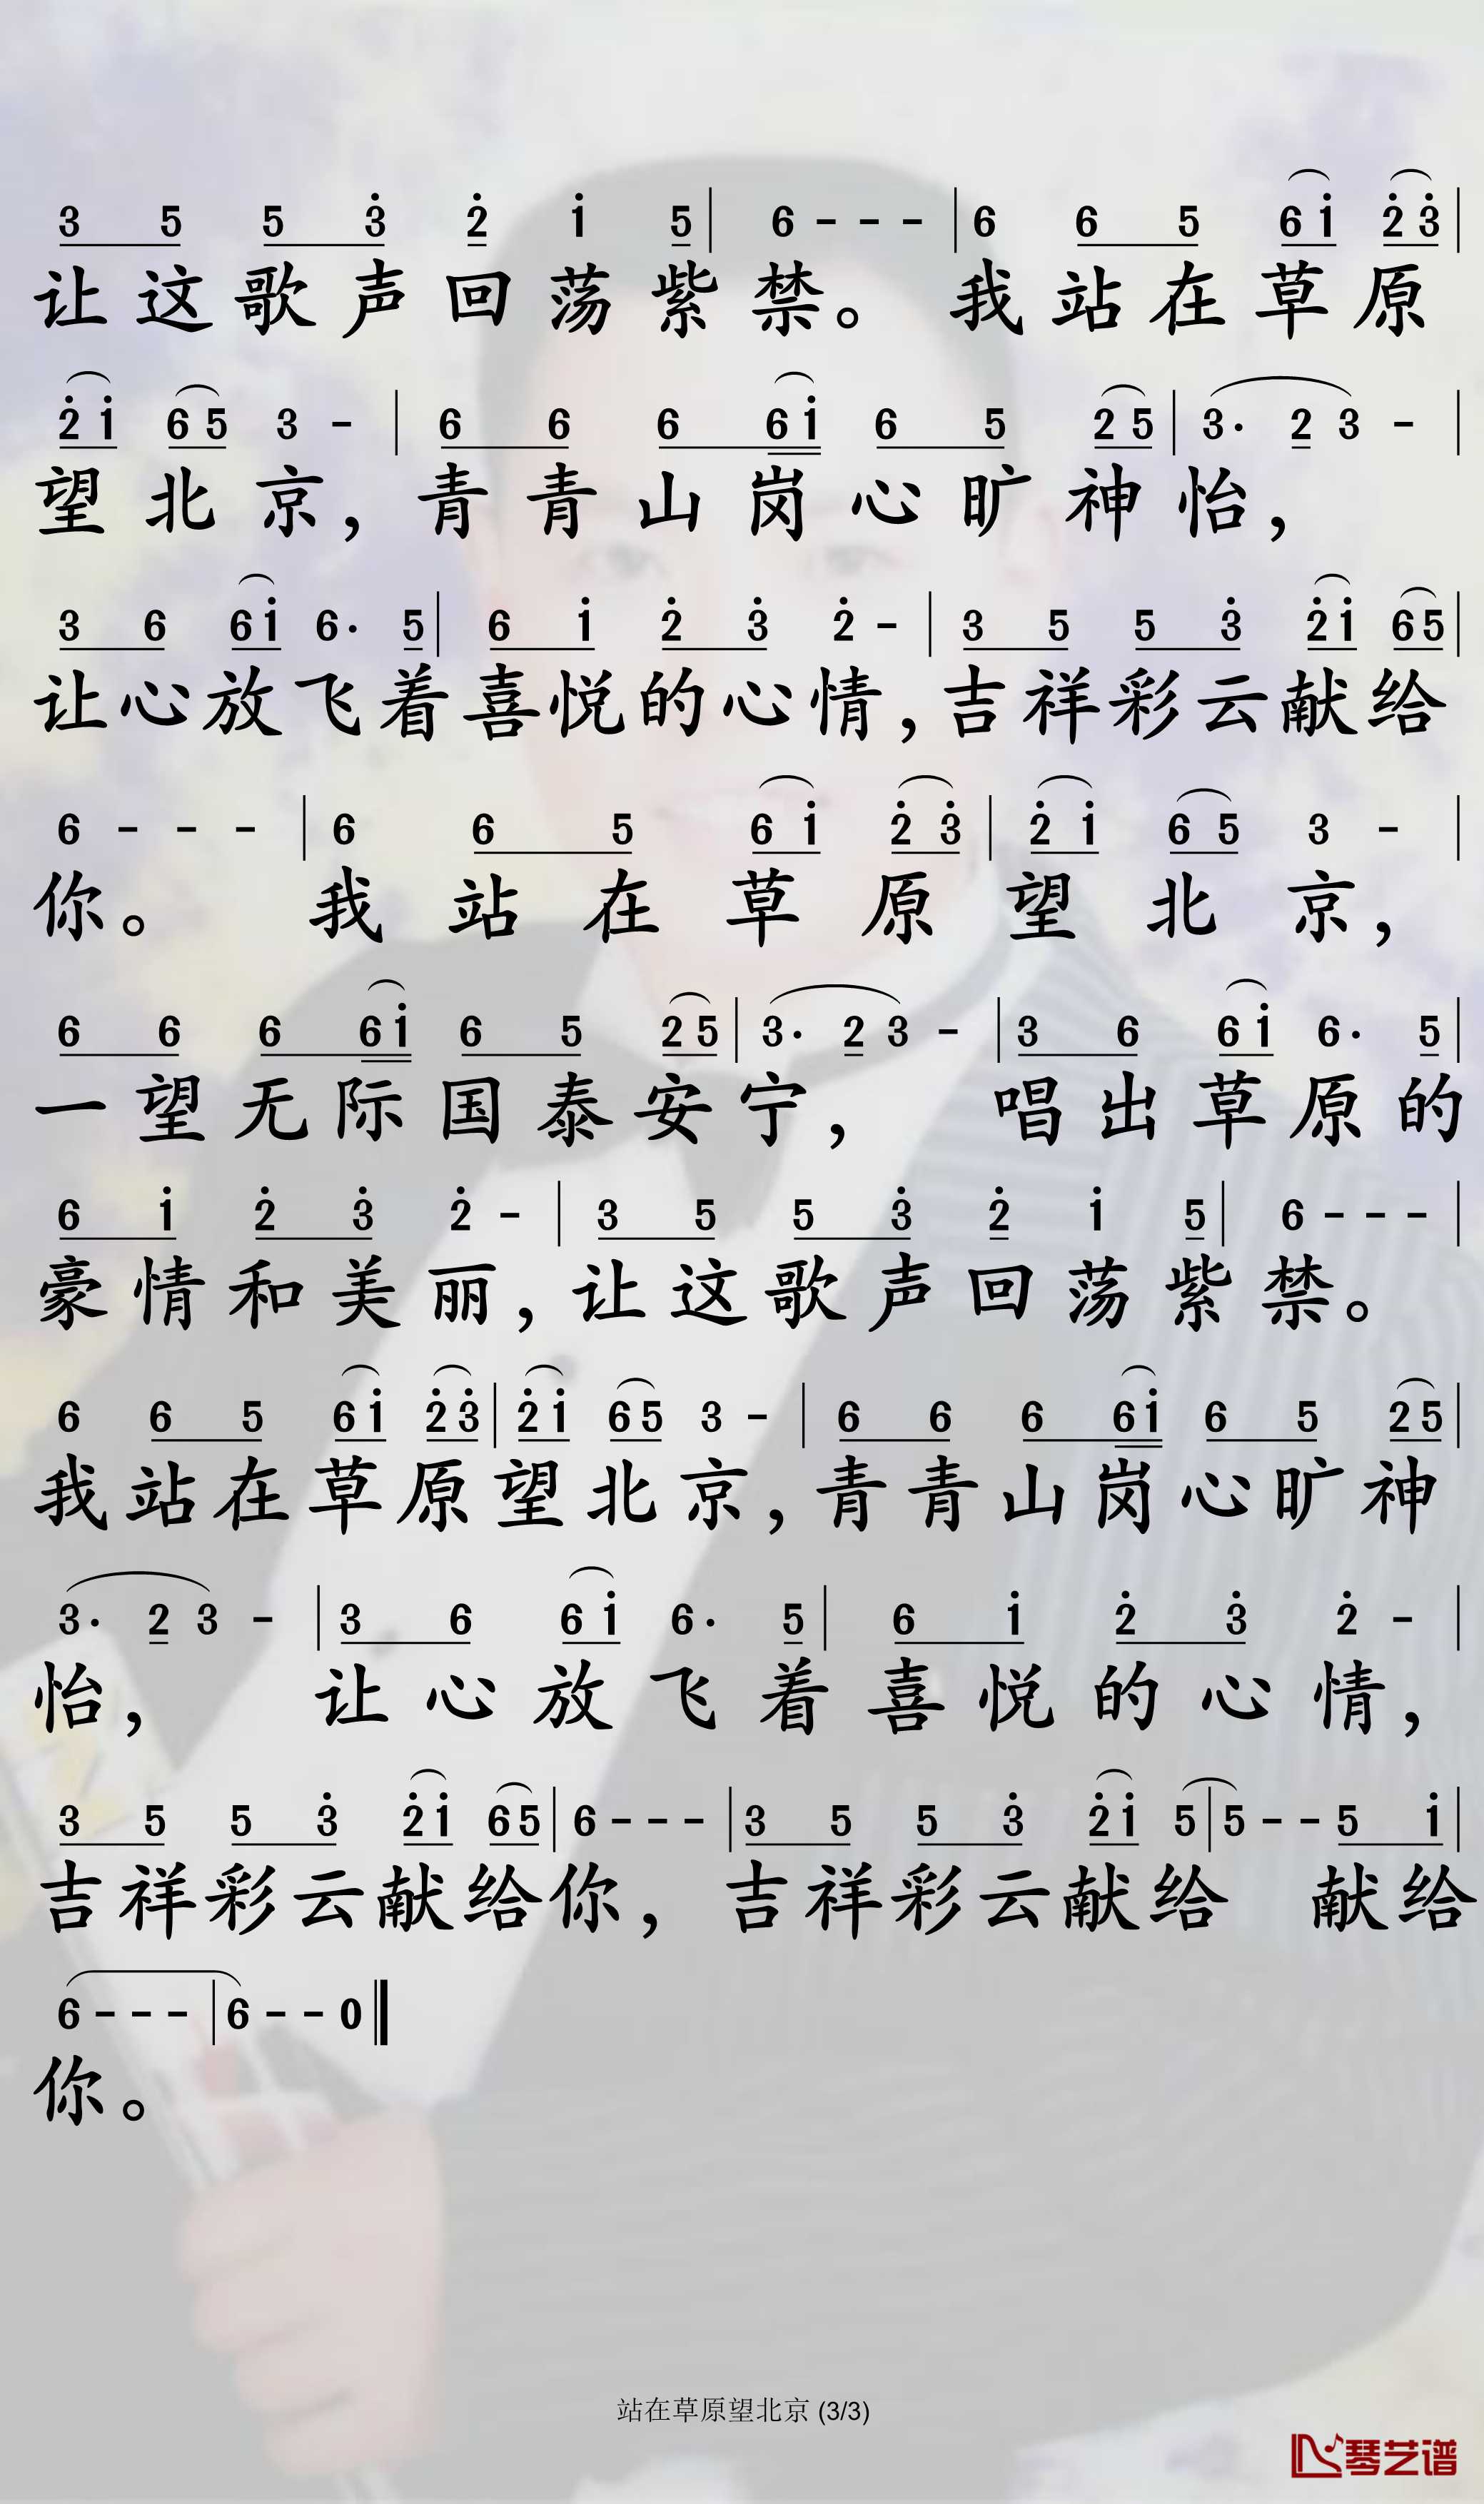 3 5 5 3̇ 2̇ 1̇ 5 | 6 - - - | 6 6 5 6 1̇ 2̇ 3̇ |
让这歌声回荡紫禁。 我站在草原
2̇ 1̇ 6 5 3 - | 6 6 6 6 1̇ 6 5 2 5 | 3· 2 3 - |
望北京，青青山岗心旷神怡，
3 6 6 1̇ 6· 5 | 6 1̇ 2̇ 3̇ 2̇ - | 3 5 5 3̇ 2̇ 1̇ 6 5 |
让心放飞着喜悦的心情，吉祥彩云献给
6 - - - | 6 6 5 6 1̇ 2̇ 3̇ | 2̇ 1̇ 6 5 3 - |
你。 我站在草原望北京，
6 6 6 6 1̇ 6 5 2 5 | 3· 2 3 - | 3 6 6 1̇ 6· 5 |
一望无际国泰安宁， 唱出草原的
6 1̇ 2̇ 3̇ 2̇ - | 3 5 5 3̇ 2̇ 1̇ 5 | 6 - - - |
豪情和美丽，让这歌声回荡紫禁。
6 6 5 6 1̇ 2̇ 3̇ | 2̇ 1̇ 6 5 3 - | 6 6 6 6 1̇ 6 5 2 5 |
我站在草原望北京，青青山岗心旷神
3· 2 3 - | 3 6 6 1̇ 6· 5 | 6 1̇ 2̇ 3̇ 2̇ - |
怡， 让心放飞着喜悦的心情，
3 5 5 3̇ 2̇ 1̇ 6 5 | 6 - - - | 3 5 5 3̇ 2̇ 1̇ 5 | 5 - - 5 1̇ |
吉祥彩云献给你，吉祥彩云献给 献给
6 - - - | 6 - - 0 ‖
你。
站在草原望北京 (3/3)
琴艺谱